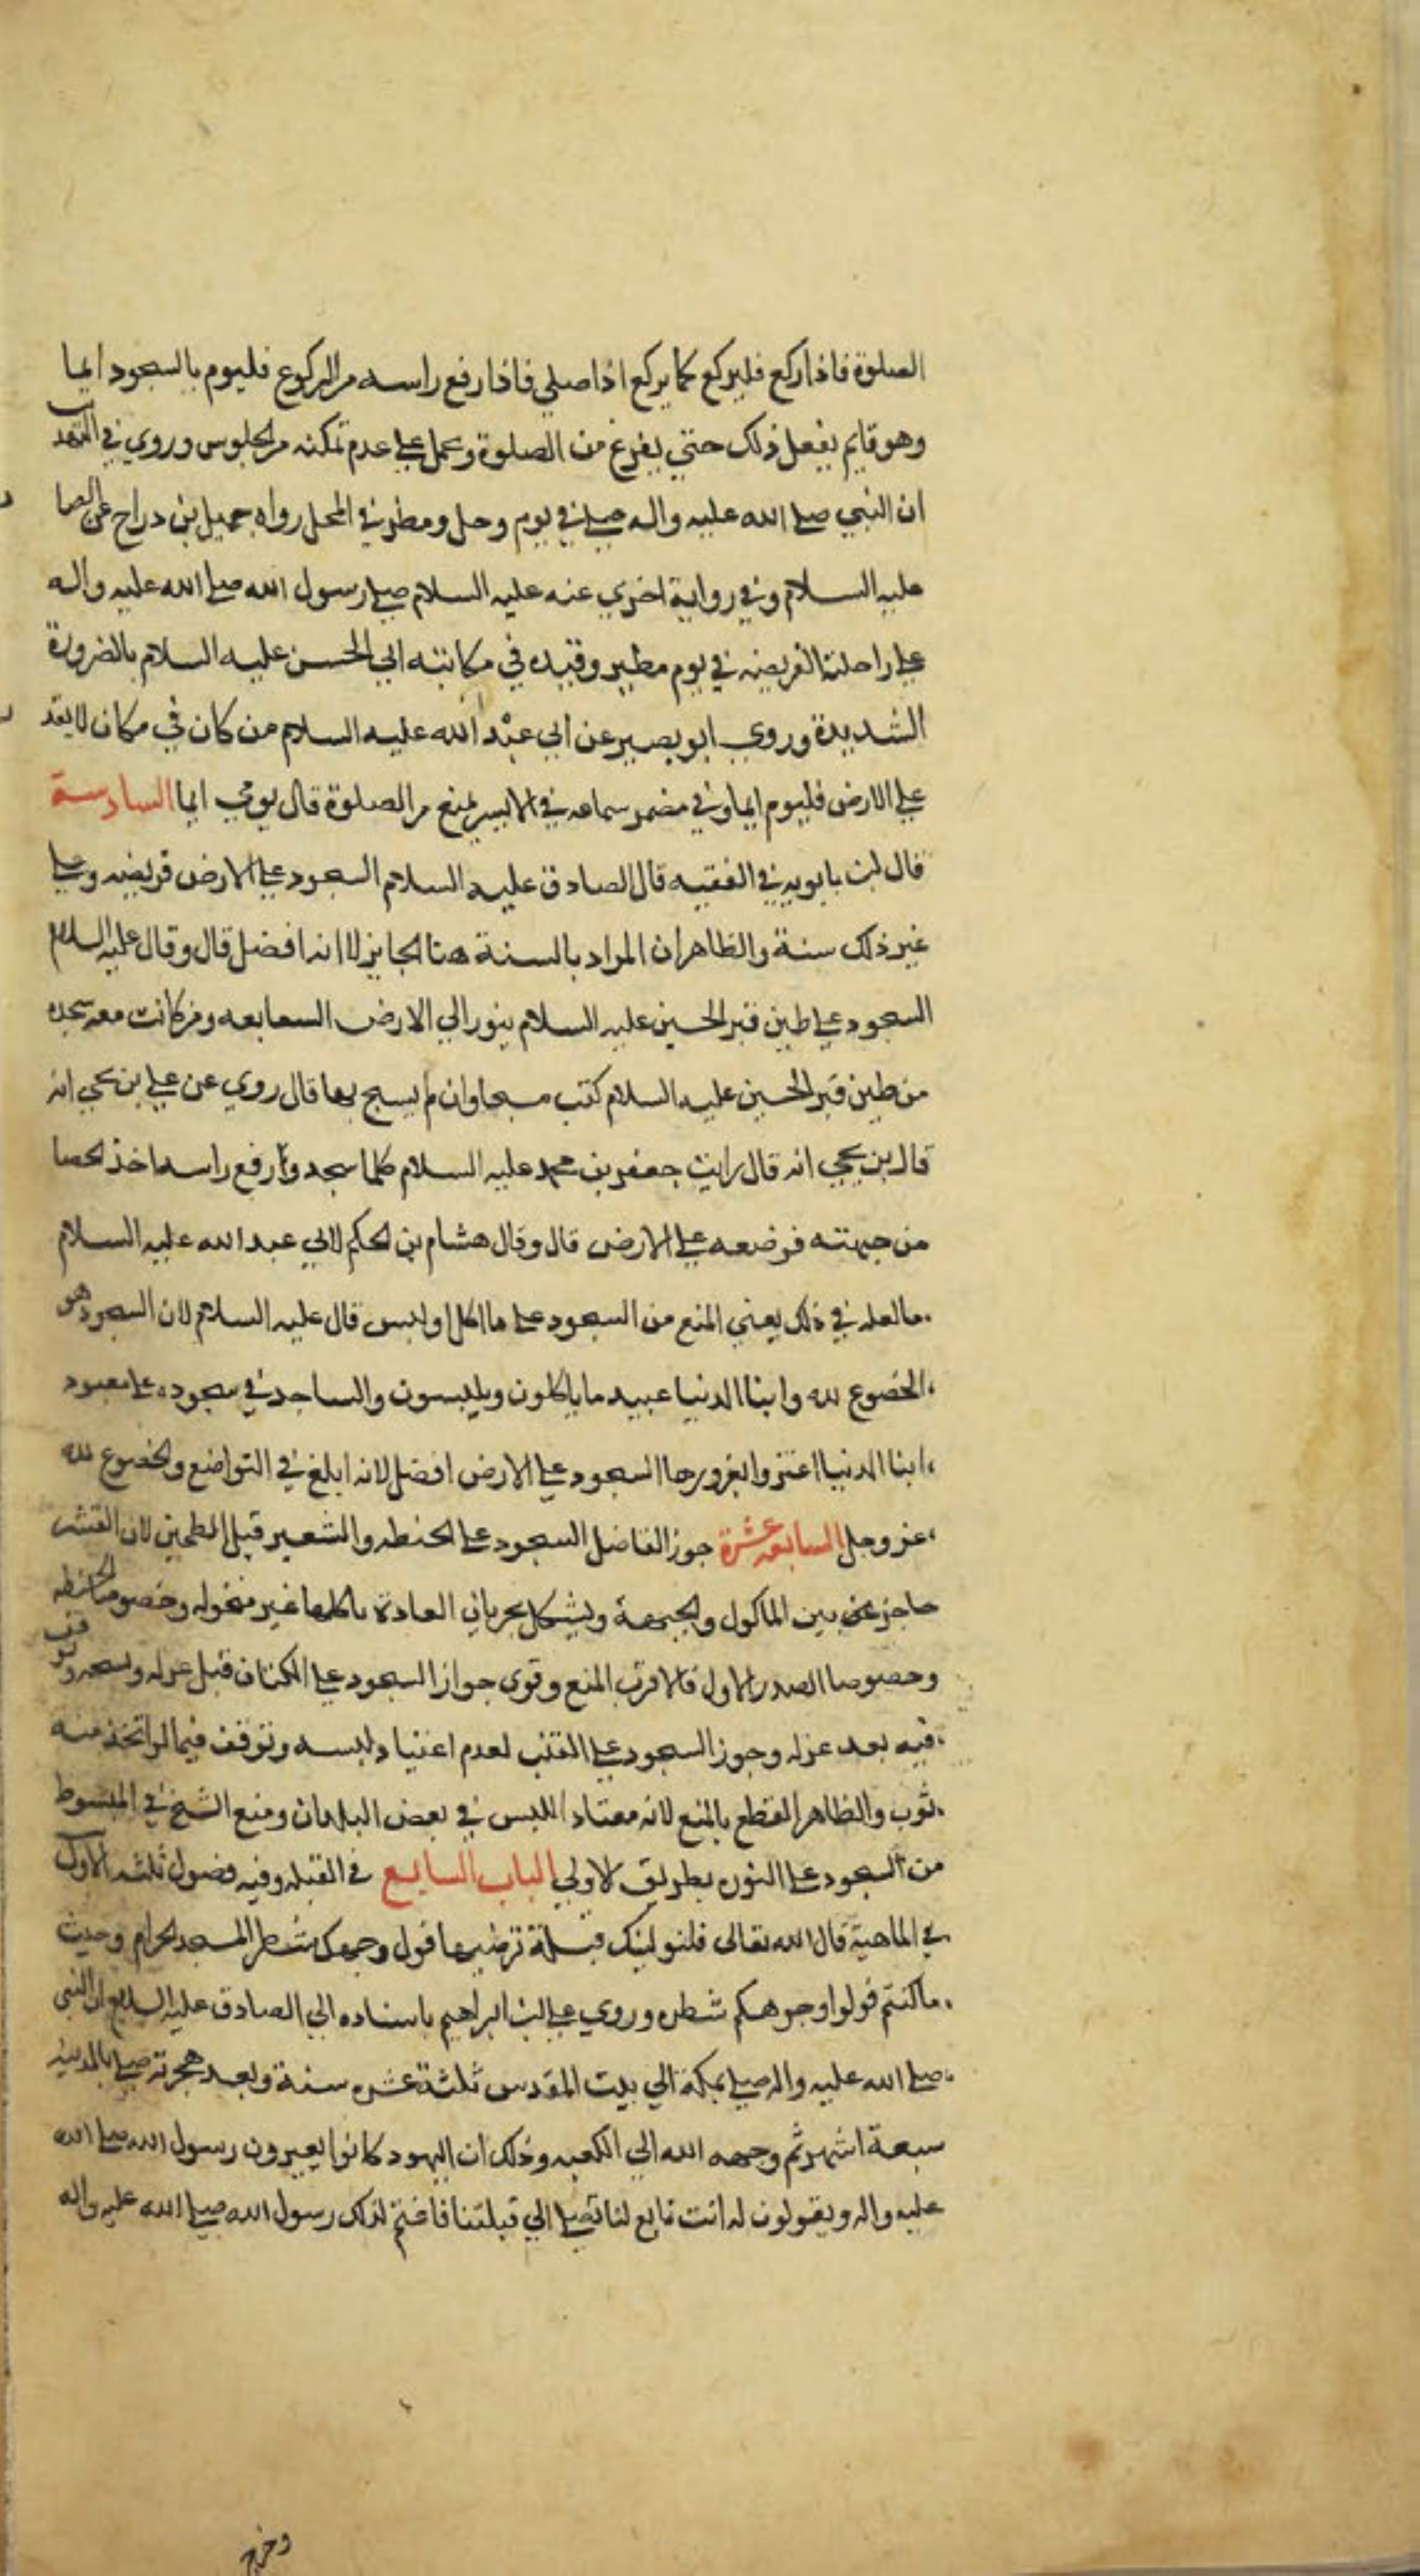 الصلوة فاذا ركع فليركع كما يركع اذا صلي فاذا رفع راسه من الركوع فليوم بالسجود ايما
وهو قايم يفعل ذلك حتي يفرغ من الصلوة وحمل علي عدم تمكنه من الجلوس وروي في التهذيب
ان النبي صلي الله عليه واله صلي في يوم وحل ومطر في المحمل رواه جميل بن دراج عن الصا
عليه السلام وفي رواية اخري عنه عليه السلام صلي رسول الله صلي الله عليه واله
علي راحلته الفريضه في يوم مطير وقيده في مكاتبته ابي الحسن عليه السلام بالضرورة
الشديدة وروي ابو بصير عن ابي عبد الله عليه السلام من كان في مكان لا يقد
علي الارض فليوم ايما وفي مضمر سماعه في الاسير يمنع من الصلوة قال يومي ايما السادسة
قال ابن بابويه في الفقيه قال الصادق عليه السلام السجود علي الارض فريضه وعلي
غير ذلك سنة والظاهر ان المراد بالسنة هنا الجايز لا انه افضل قال وقال عليه السلام
السجود علي طين قبر الحسين عليه السلام ينور الي الارض السعابعه ومن كانت معه سبحه
من طين قبر الحسين عليه السلام كتب مسبحا وان لم يسبح بها قال روي عن علي بن يحيي انه
قال بن يحيي انه قال رايت جعفر بن محمد عليه السلام كلما سجد و رفع راسه اخذ الحصا
من جبهته فوضعه علي الارض قال وقال هشام بن الحكم لابي عبد الله عليه السلام
ما العله في ذلك يعني المنع من السجود علي ما اكل او لبس قال عليه السلام لان السجود هو
الخضوع لله وابنا الدنيا عبيد ما ياكلون ويلبسون والساجد في سجوده علي معبود
ابنا الدنيا اغتروا بغرورها السجود علي الارض افضل لانه ابلغ في التواضع والخضوع لله
عز وجل السابعه عشرة جوز الفاضل السجود علي الحنطه والشعير قبل الطحين لان القشر
حاجز بين الماكول والجبهة ويشكل بجريان العادة باكلها غير منخوله وخصوصا الحنطه
وخصوصا الصدر الاول فالاقرب المنع وقوي جواز السجود علي الكتان قبل غزله ونسجه وتوقف
فيه بعد غزله وجوز السجود علي القنب لعدم اعتياد لبسه وتوقف فيما لو اتخذ منه
ثوب والظاهر القطع بالمنع لانه معتاد اللبس في بعض البلدان ومنع الشيخ في المبسوط
من السجود علي النوره بطريق الاولي الباب السابع في القبله وفيه فصول ثلثه الاول
في الماهية قال الله تعالى فلنولينك قبلة ترضيها فول وجهك شطر المسجد الحرام وحيث
ما كنتم فولوا وجوهكم شطره وروي علي ابن ابراهيم باسناده الي الصادق عليه السلام ان النبي
صلي الله عليه واله صلي بمكة الي بيت المقدس ثلثة عشره سنة وبعد هجرته صلي بالمدينه
سبعة اشهر ثم وجهه الله الي الكعبه وذلك ان اليهود كانوا يعيرون رسول الله صلي الله
عليه واله ويقولون له انت تابع لنا تصلي الي قبلتنا فاغتم لذلك رسول الله صلي الله عليه واله
وخرج